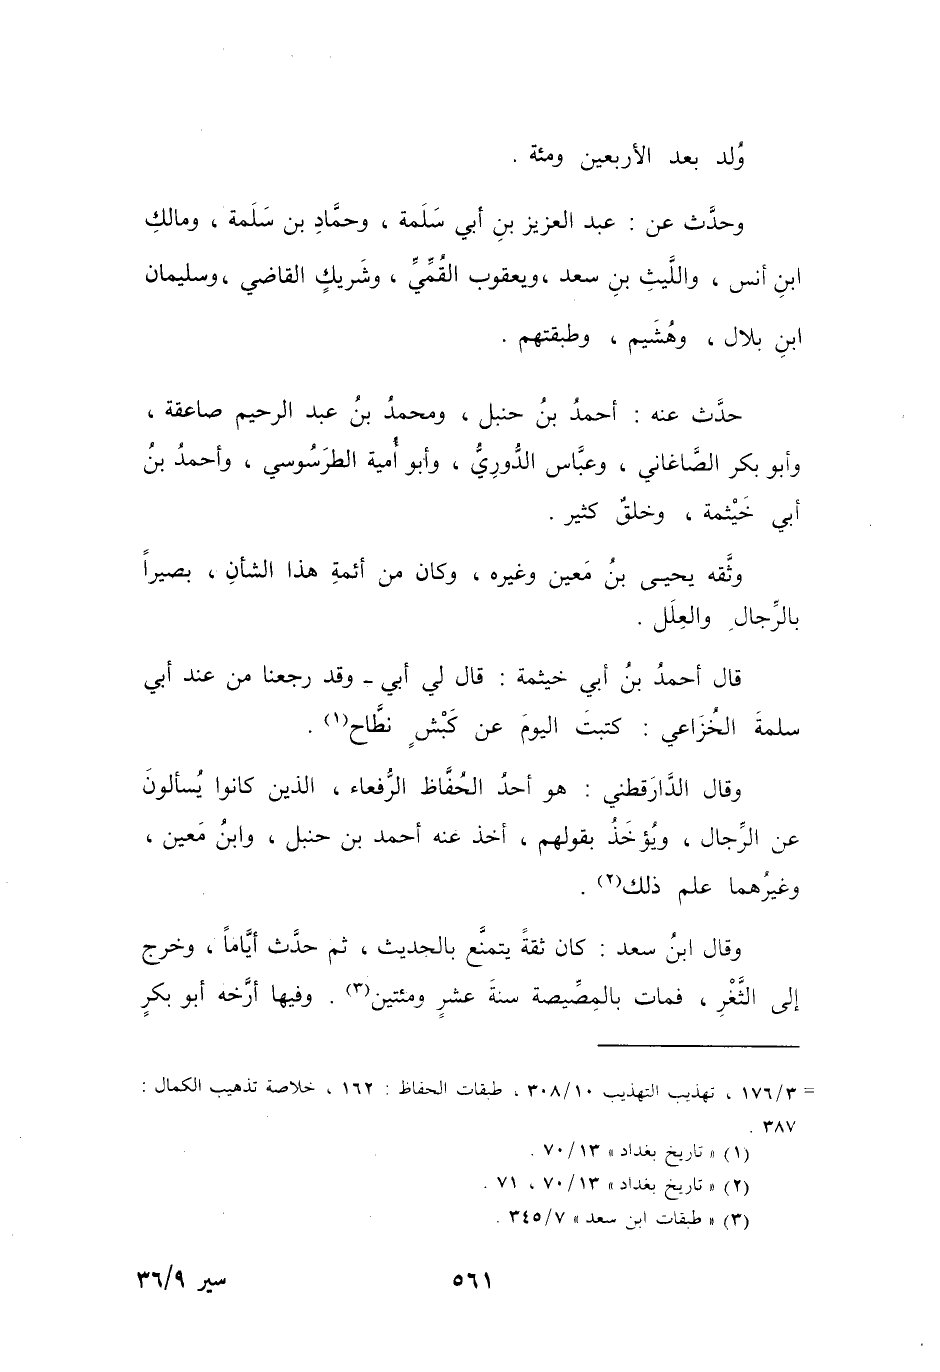 وُلد بعد الأربعين ومئة .
وحدَّث عن : عبد العزيز بنِ أبي سَلَمة ، وحمَّادِ بن سَلَمة ، ومالكِ
ابنِ أنس ، واللَّيثِ بنِ سعد ،ويعقوب القُمِّيِّ ، وشَريكٍ القاضي ،وسليمان
ابنِ بلال ، وهُشَيم ، وطبقتهم .
حدَّث عنه : أحمدُ بنُ حنبل ، ومحمدُ بنُ عبد الرحيم صاعقة ،
وأبو بكر الصَّاغاني ، وعبَّاس الدُّورِيُّ ، وأبو أُمية الطرَسُوسي ، وأحمدُ بنُ
أبي خَيْثمة ، وخلقٌ كثير .
وثَّقه يحيـى بنُ مَعين وغيره ، وكان من أئمةِ هذا الشأنِ ، بصيراً
بالرِّجالِ والعِلَل .
قال أحمدُ بنُ أبي خيثمة : قال لي أبي ـ وقد رجعنا من عند أبي
سلمةَ الخُزَاعي : كتبتَ اليومَ عن كَبْشٍ نطَّاح(١) .
وقال الدَّارَقطني : هو أحدُ الحُفَّاظ الرُّفعاء ، الذين كانوا يُسألونَ
عن الرِّجال ، ويُؤخَذُ بقولهم ، أخذ عنه أحمد بن حنبل ، وابنُ مَعين ،
وغيرُهما علم ذلك(٢) .
وقال ابنُ سعد : كان ثقةً يتمنَّع بالحديث ، ثم حدَّث أيَّاماً ، وخرج
إلى الثَّغْرِ ، فمات بالمِصِّيصة سنةَ عشرٍ ومئتين(٣) . وفيها أرَّخه أبو بكرٍ
= ١٧٦/٣ ، تهذيب التهذيب ٣٠٨/١٠ ، طبقات الحفاظ : ١٦٢ ، خلاصة تذهيب الكمال :
٣٨٧ .
(١) « تاريخ بغداد » ٧٠/١٣ .
(٢) « تاريخ بغداد » ٧٠/١٣ ، ٧١ .
(٣) « طبقات ابن سعد » ٣٤٥/٧ .
٥٦١
سير ٣٦/٩